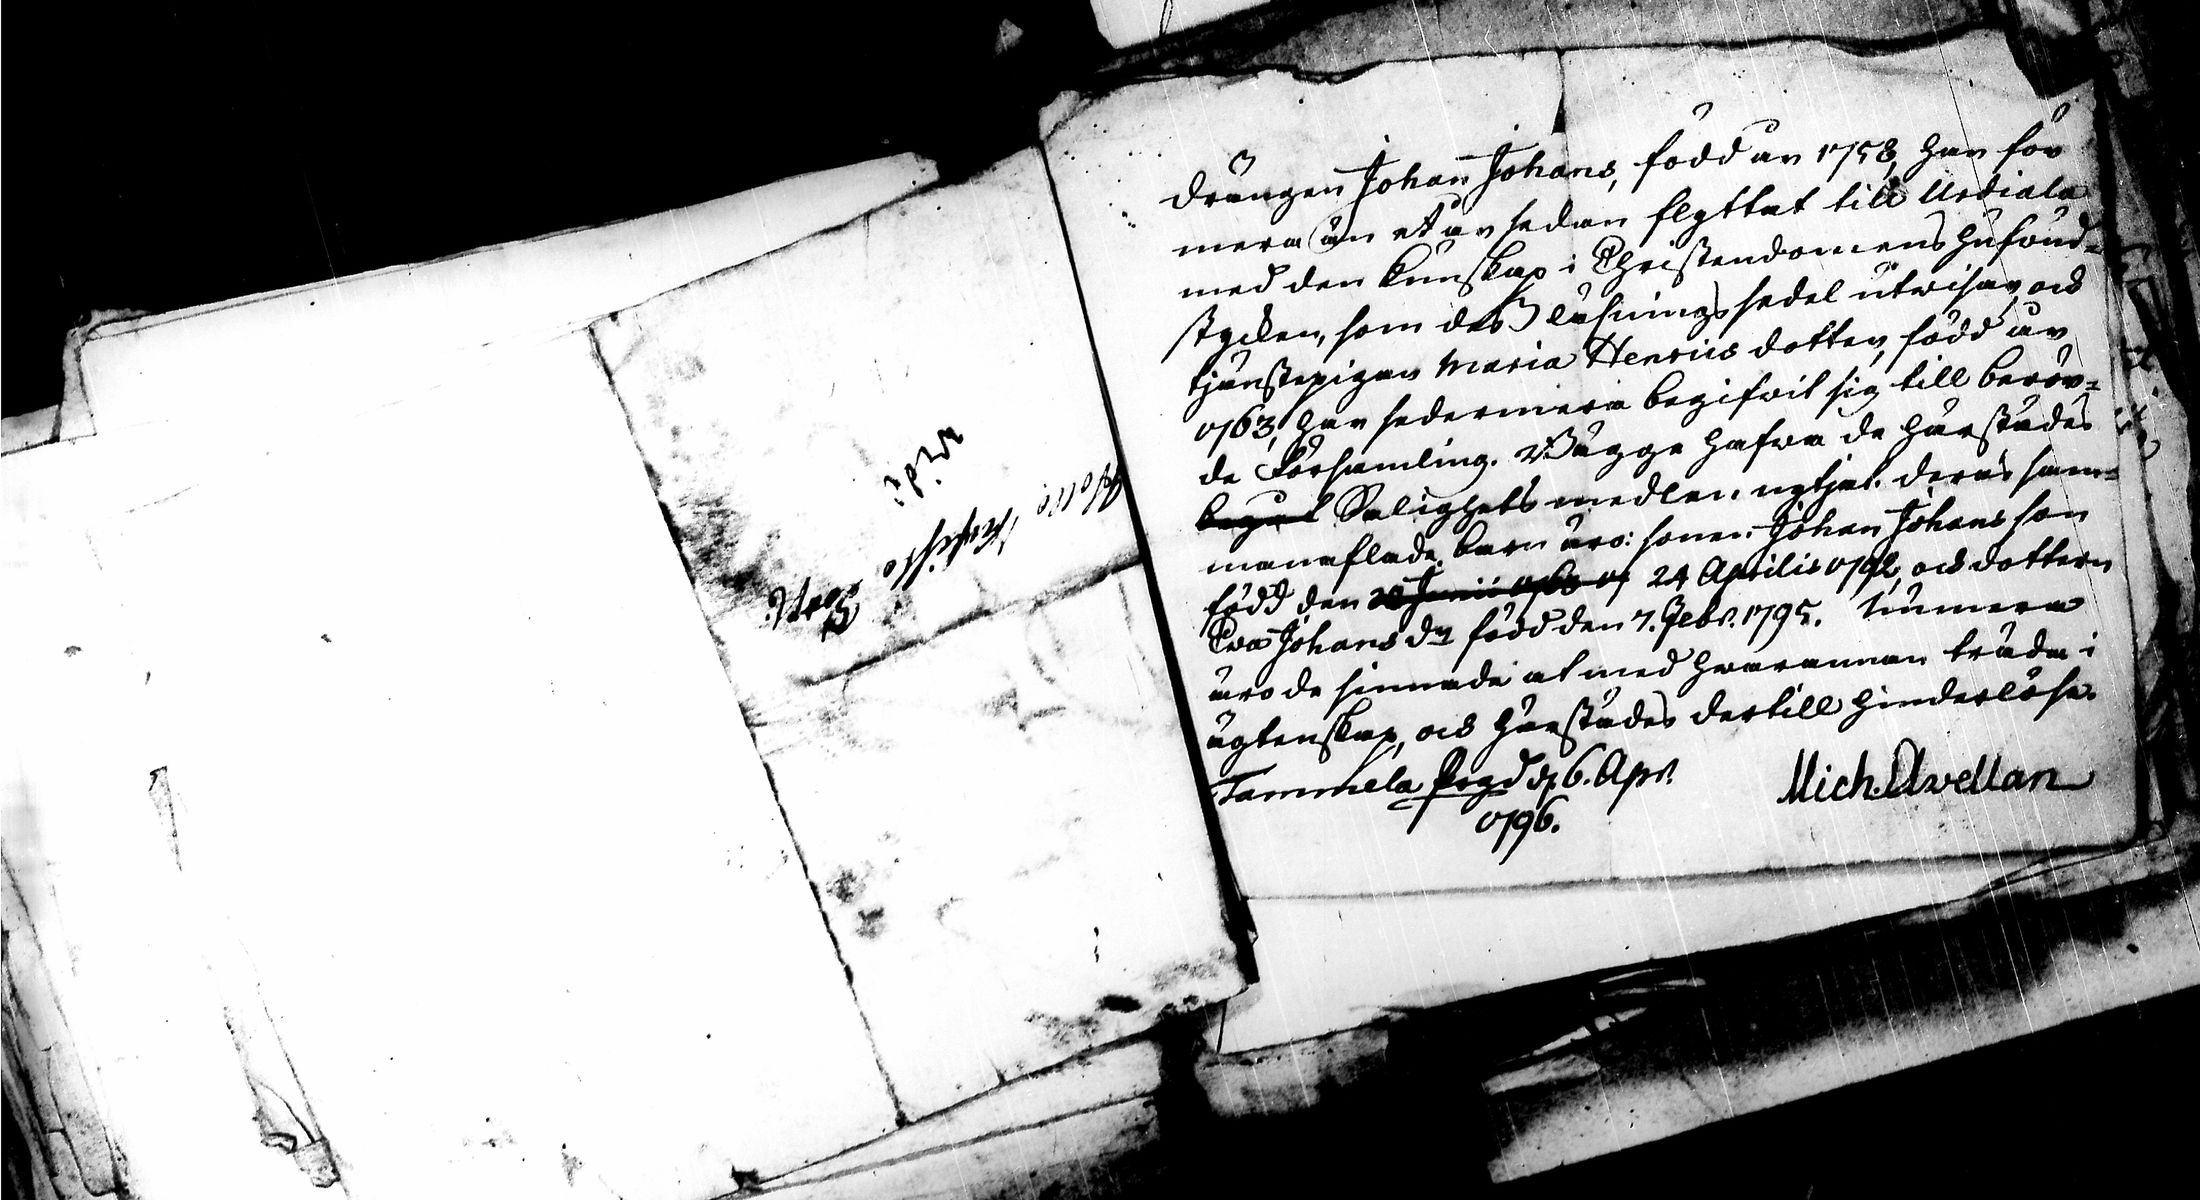 Drängen Johan Johans, född år 1758, har för
mera än et år sedan flyttat till Urdiala
med den kunskap i Christendomens hufvud-
stycken, som dess läsnings sedel utvisar, och
tjänstepigan Maria Henrics dotter, född år
1763, har sedermera begifvit sig till berör-
de Församling. Bägge hafva de härstädes
begåt Salighets medlen nytjat. deras sam-
manaflade barn äro: sonen Johan Johans son
född den 24 Aprilis 1792, och dottern
Eva Johans dr född den 7. Febr. 1795. Numera
äro de sinnade at med hvarannan träda i
ägtenskap, och härstädes dertill hinderlöse.
Tammela Prgd d. 6. Apr.
1796.
Mich. Avellan